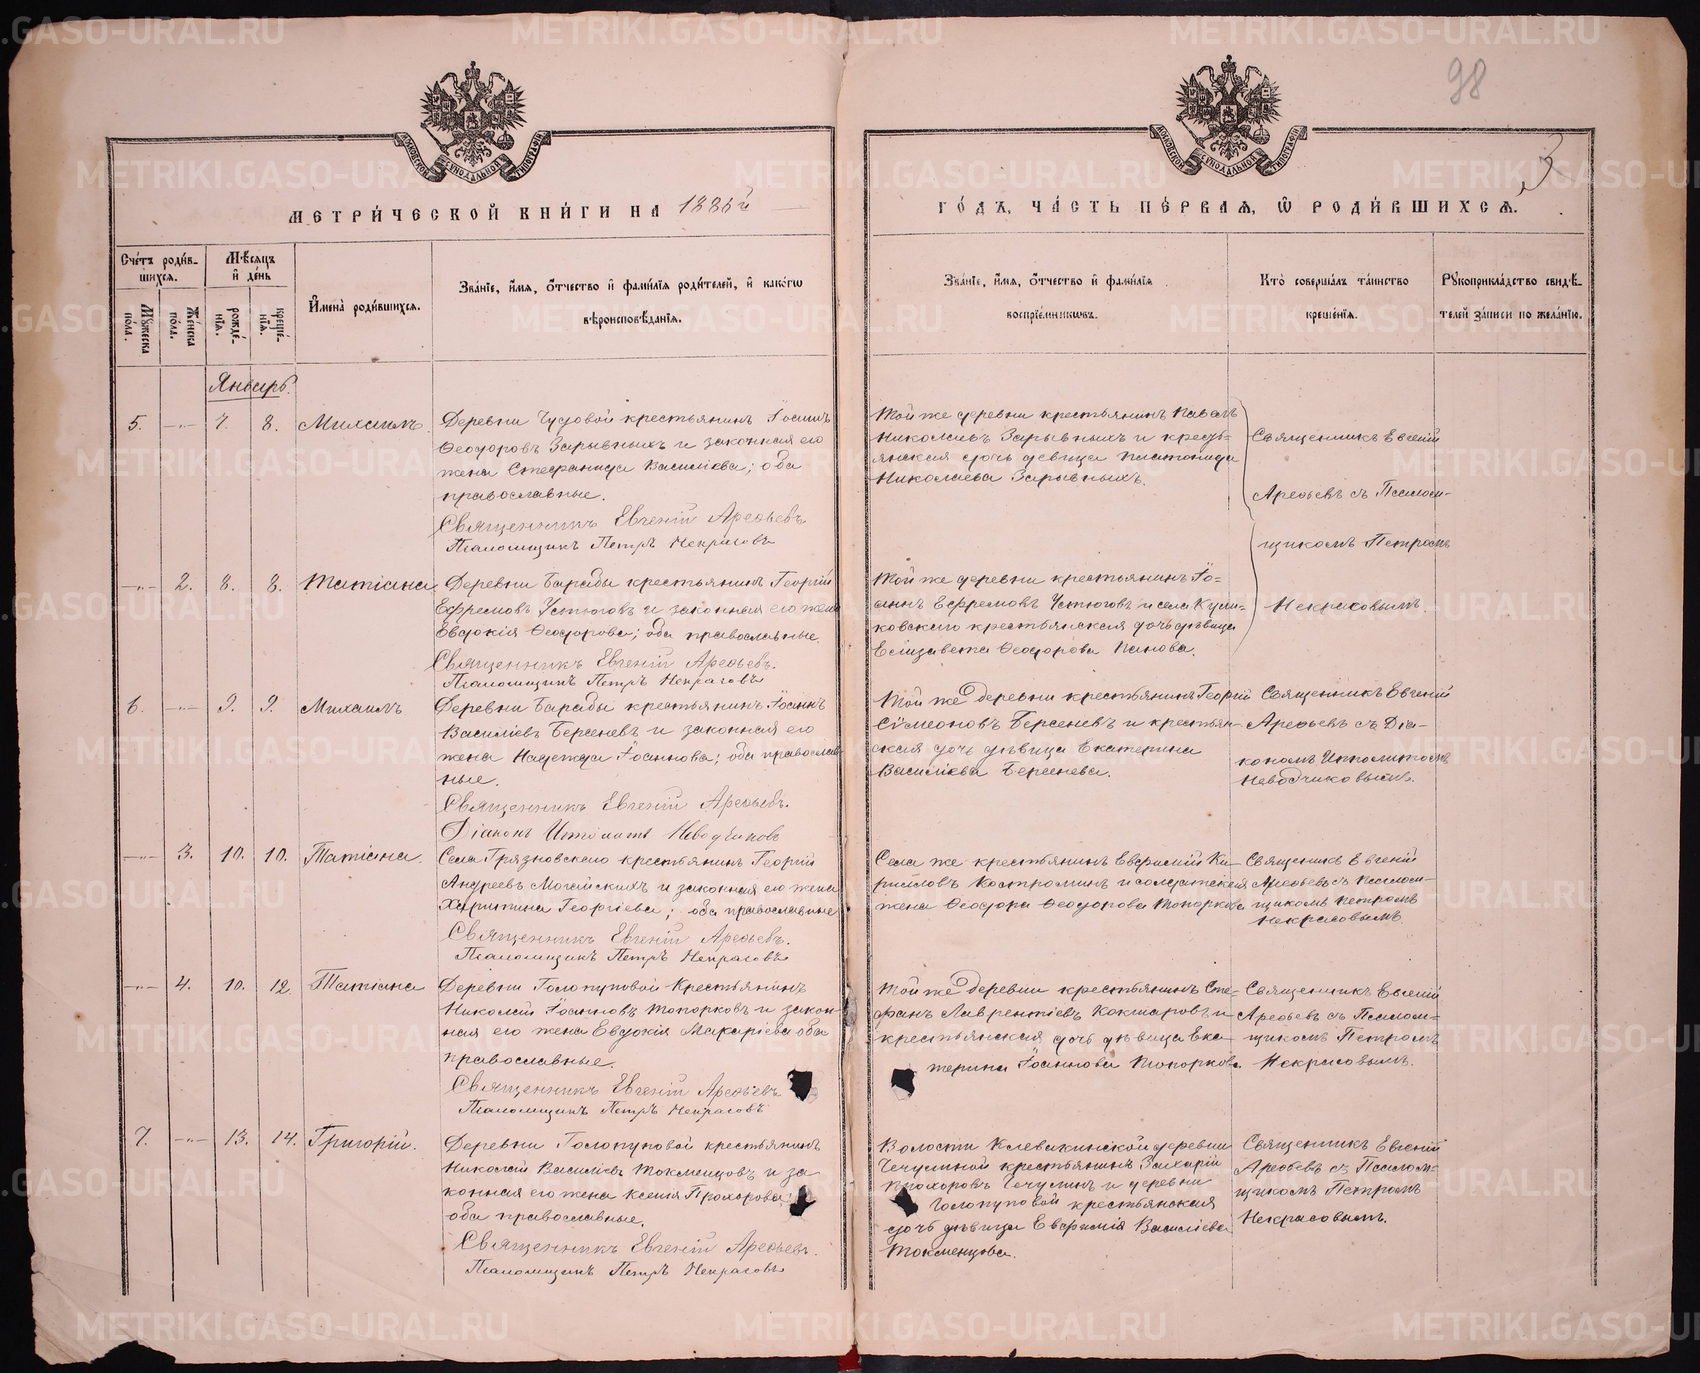 98
3
МЕТРИ́ЧЕСКОЙ КНИ́ГИ НА 1886й
ГО́ДЪ, ЧА́СТЬ ПЕ́РВАЯ, Ѿ РОДИ́ВШИХСЯ.
Сче́тъ роди́в-
шихся.
Мꙋжеска по́ла.
Же́нска по́ла.
Мѣ́сяцъ и де́нь
рожде́-
нїя.
креще́-
нїя.
И҆мена̀ роди́вшихся.
Зва́нїе, и҆́мя, о҆́тчество и҆ фами́лїя роди́телей, и҆ како́гѡ
вѣроисповѣ́данїя.
Зва́нїе, и҆́мя, о҆́тчество и҆ фами́лїя
воспрїе́мникѡвъ.
Кто̀ соверша́лъ та́инство
креще́нїя.
Рꙋкоприкла́дство свидѣ́-
телей за́писи по жела́нїю.
Январь.
5. -„- 7. 8. Михаилъ.
Деревни Чудовой крестьянинъ Іосифъ
Ѳеодоровъ Зарывныхъ и законная его
жена Стефанида Василіева; оба
православные.
Священникъ Евгеній Арефьевъ
Псаломщикъ Петръ Некрасовъ
Той же деревни крестьянинъ Павелъ
Николаевъ Зарывныхъ и кресть-
янская дочь девица Платонида
Николаева Зарывныхъ.
Священникъ Евгеній
Арефьевъ съ Псалом-
щикомъ Петромъ
Некрасовымъ.
-„- 2. 8. 8. Татіана
Деревни Барабы крестьянинъ Георгій
Ефремовъ Устюговъ и законная его жена
Евдокія Ѳеодорова; оба православные.
Священникъ Евгеній Арефьевъ.
Псаломщикъ Петръ Некрасовъ
Той же деревни крестьянинъ Іо-
аннъ Ефремовъ Устюговъ и села Кули-
ковскаго крестьянская дочь дѣвица
Елизавета Ѳеодорова Панова.
6. -„- 9. 9. Михаилъ
Деревни Барабы крестьянинъ Іоаннъ
Василіевъ Берсеневъ и законная его
жена Надежда Іоаннова; оба православ-
ные.
Священникъ Евгеній Арефьевъ.
Діаконъ Ипполитъ Неводчиковъ
Той же деревни крестьянинъ Георгій
Сѵмеоновъ Берсеневъ и крестьян-
ская дочь дѣвица Екатерина
Василіева Берсенева.
Священникъ Евгеній
Арефьевъ съ Діа-
кономъ Ипполитомъ
Неводчиковымъ.
-„- 3. 10. 10. Татіана.
Села Грязновскаго крестьянинъ Георгій
Андреевъ Могайскихъ и законная его жена
Харитина Георгіева; оба православные
Священникъ Евгеній Арефьевъ.
Псаломщикъ Петръ Некрасовъ
Села же крестьянинъ Евфимій Ки-
рилловъ Костроминъ и солдатская
жена Ѳеодора Ѳеодорова Топоркова
Священикъ Евгеній
Арефьевъ съ Псалом-
щикомъ Петромъ
Некрасовымъ.
-„- 4. 10. 12. Татіана
Деревни Голопуповой Крестьянинъ
Николай Іоанновъ Топорковъ и закон-
ная его жена Евдокія Макаріева оба
православные.
Священникъ Евгеній Арефьевъ
Псаломщикъ Петръ Некрасовъ
Той же деревни крестьянинъ Сте-
фанъ Лаврентіевъ Кокшаровъ и
крестьянская дочь дѣвица Ека-
терина Іоаннова Топоркова.
Священникъ Евгеній
Арефьевъ съ Псалом-
щикомъ Петромъ
Некрасовымъ.
7. -„- 13. 14. Григорій.
Деревни Голопуповой крестьянинъ
Николай Василіевъ Токменцовъ и за-
конная его жена Ксенія Прохорова;
оба православные.
Священникъ Евгеній Арефьевъ.
Псаломщикъ Петръ Некрасовъ
Волости Клевакинской деревни
Чечулиной крестьянинъ Захарій
Прохоровъ Чечулинъ и деревни
Голопуповой крестьянская
дочь дѣвица Евфимія Василіева
Токменцова.
Священникъ Евгеній
Арефьевъ съ Псалом-
щикомъ Петромъ
Некрасовымъ.
METRIKI.GASO-URAL.RU